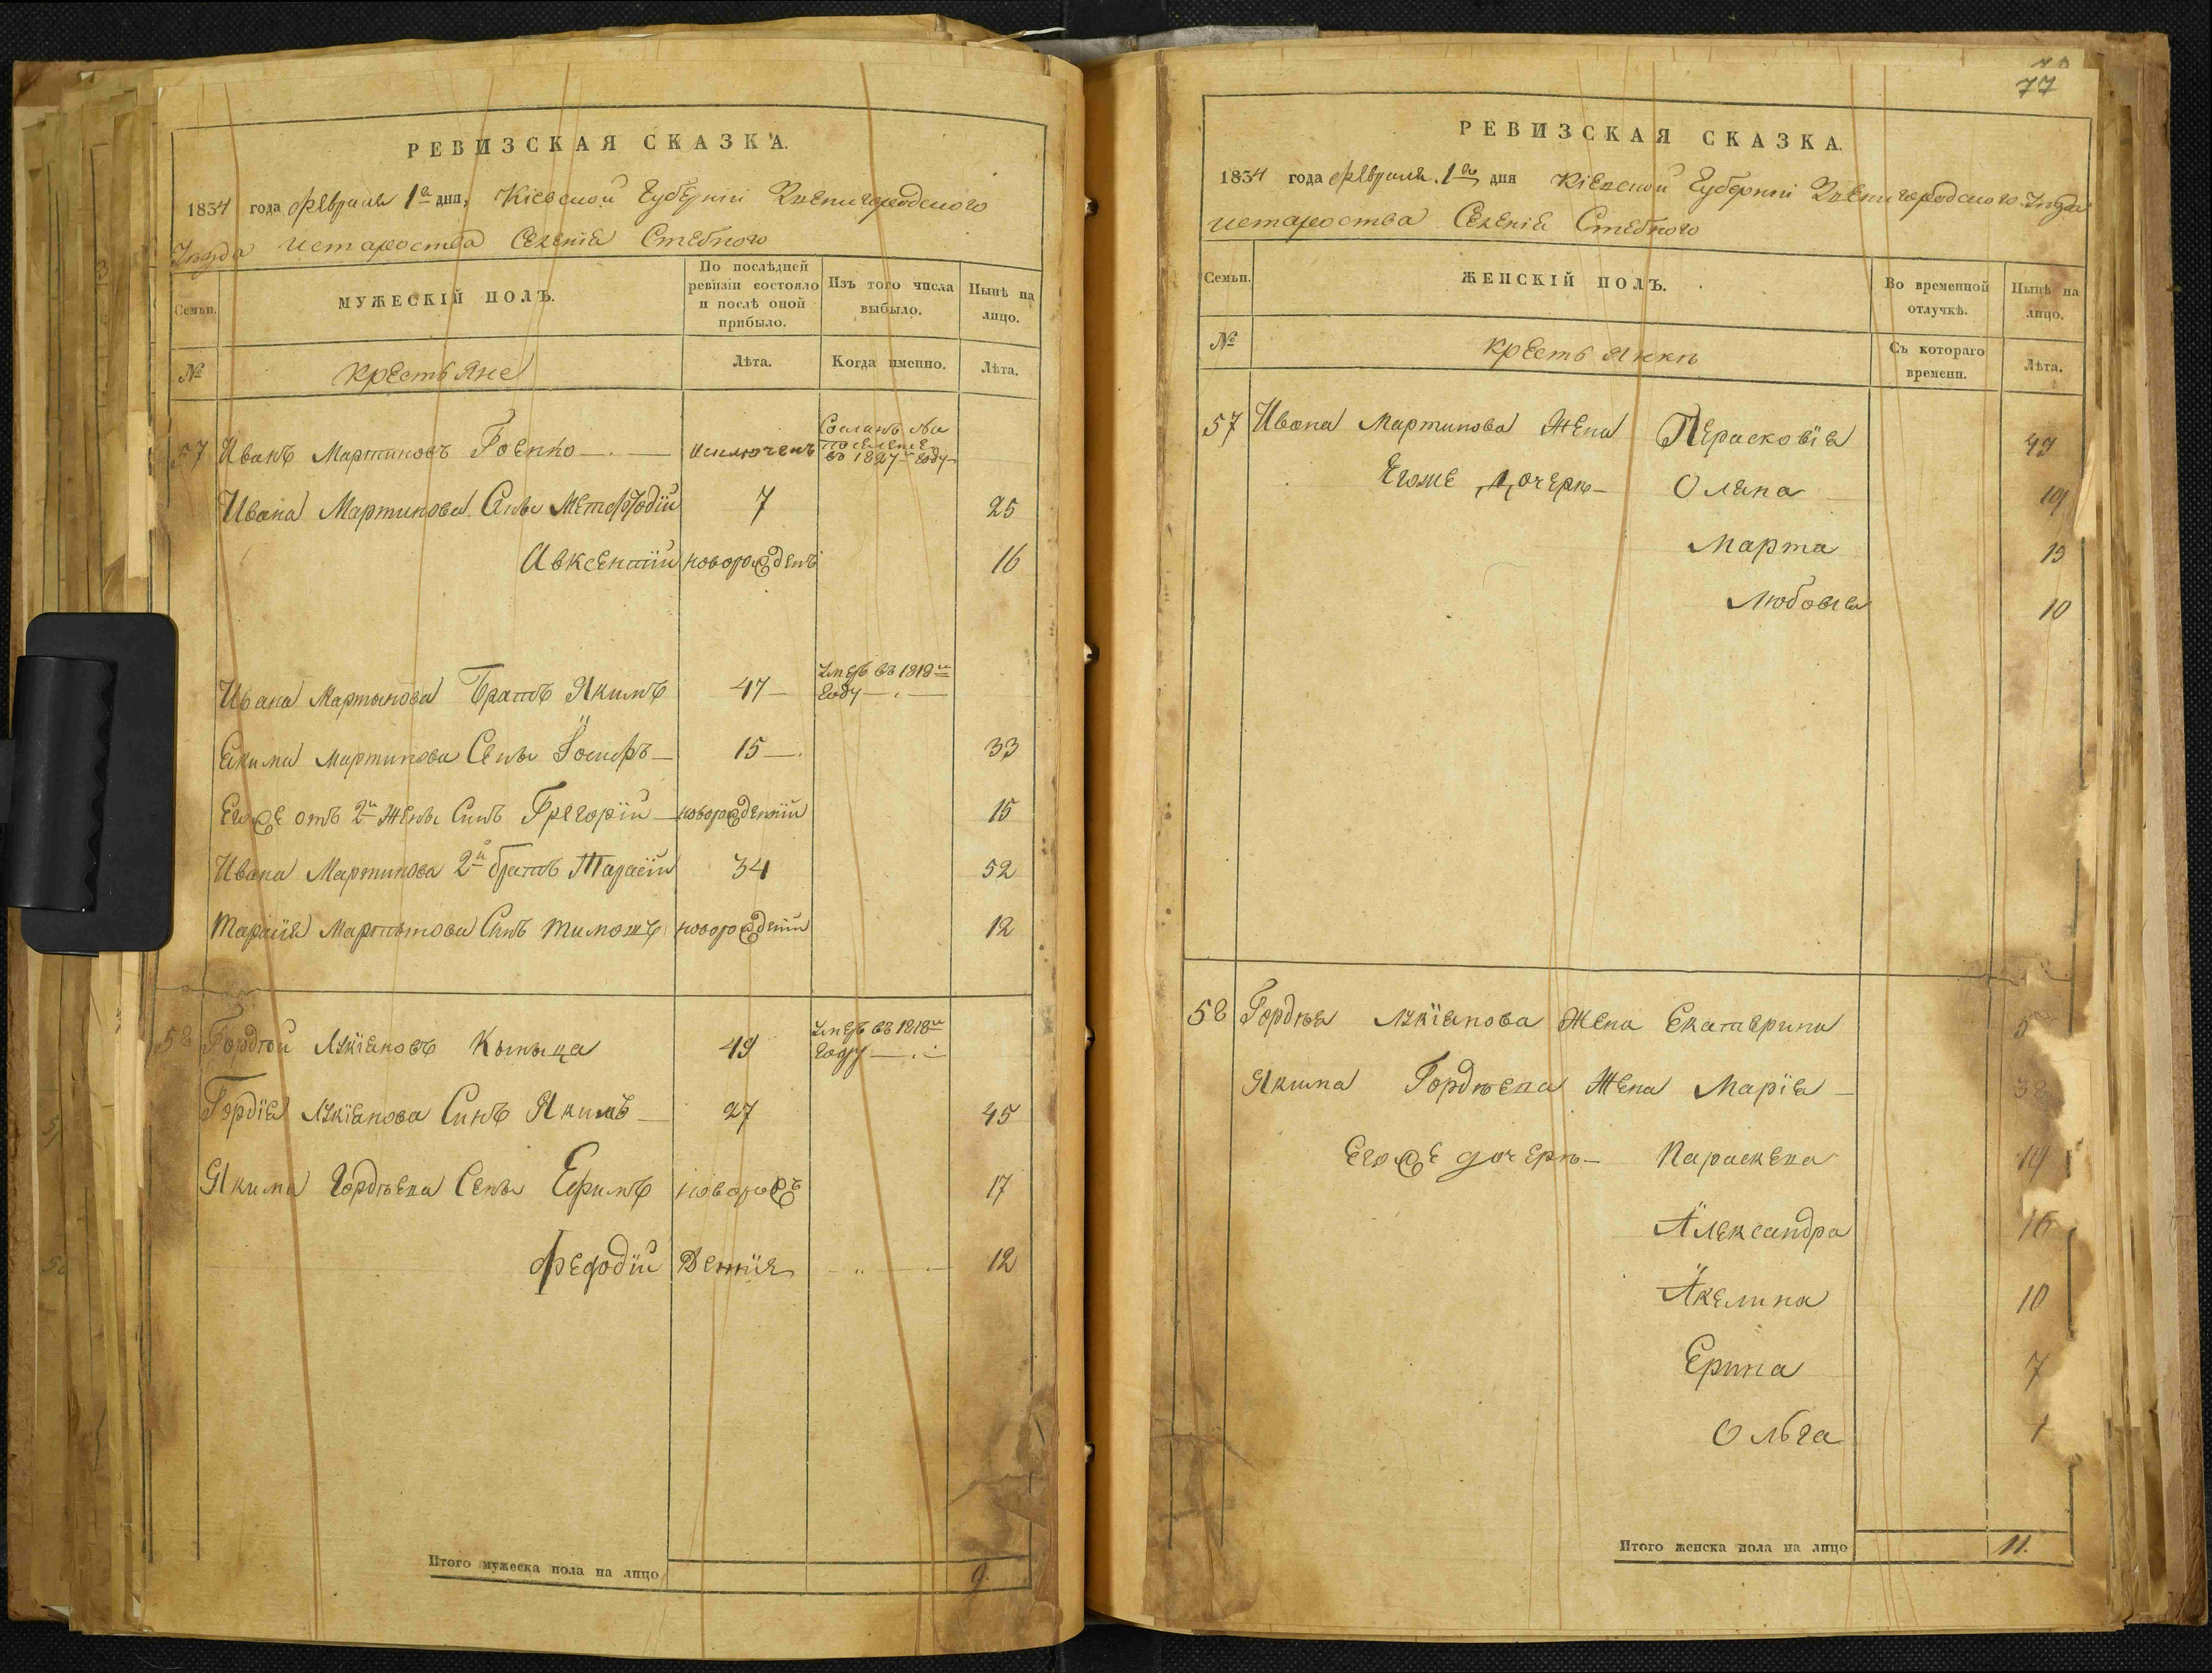 РЕВИЗСКАЯ СКАЗКА.
1834 года февраля 1го дня, Кіевской Губерніи Звенигородского
Уезда истароства Селеніѧ Стебного
Семьи. МУЖЕСКІЙ ПОЛЪ. По послѣдней ревизіи состояло и послѣ оной прибыло. Изъ того числа выбыло. Нынѣ на лицо.
№ крестьяне Лѣта. Когда именно. Лѣта.
57 Иванъ Мартиновъ Гоенко исключенъ Сосланъ на поселеніе во 1827м году
Ивана Мартинова Сынъ Метофодій 7 25
Авксентій новорожденъ 16
Ивана Мартынова Братъ Якимъ 47 Умеръ въ 1818м году
Екима Мартинова Сынъ Іосифъ 15 33
Егоже отъ 2й жены Синъ Грегорій новорожденній 15
Ивана Мартинова 2й братъ Тарасій 34 52
Тарасія Мартынова Синъ Тимошъ новорожденій 12
58 Гордѣй Лукіановъ Кыныца 49 Умеръ въ 1818м году
Гордія Лукіанова Синъ Якимъ 27 45
Якима Гордѣева Сынъ Ефимъ новорож 17
Федодій Денніе 12
Итого мужеска пола на лицо 9
77
РЕВИЗСКАЯ СКАЗКА.
1834 года февраля 1го дня Кіевской Губерніи Звенигородского Уезда
истароства Селеніѧ Стебного
Семьи. ЖЕНСКІЙ ПОЛЪ. Во временной отлучкѣ. Нынѣ на лицо.
№ крестьянки Съ котораго времени. Лѣта.
57 Ивана Мартинова Жена Перасковія 49
Егоже дочерѣ Оляна 19
Марта 13
Любовія 10
58 Гордѣя Лукіанова Жена Екатерина
Якима Гордѣева Жена Марія 38
Егоже дочерѣ Параскева 19
Александра 16
Акелина 10
Ерина 7
Ольга 1
Итого женска пола на лицо 11.